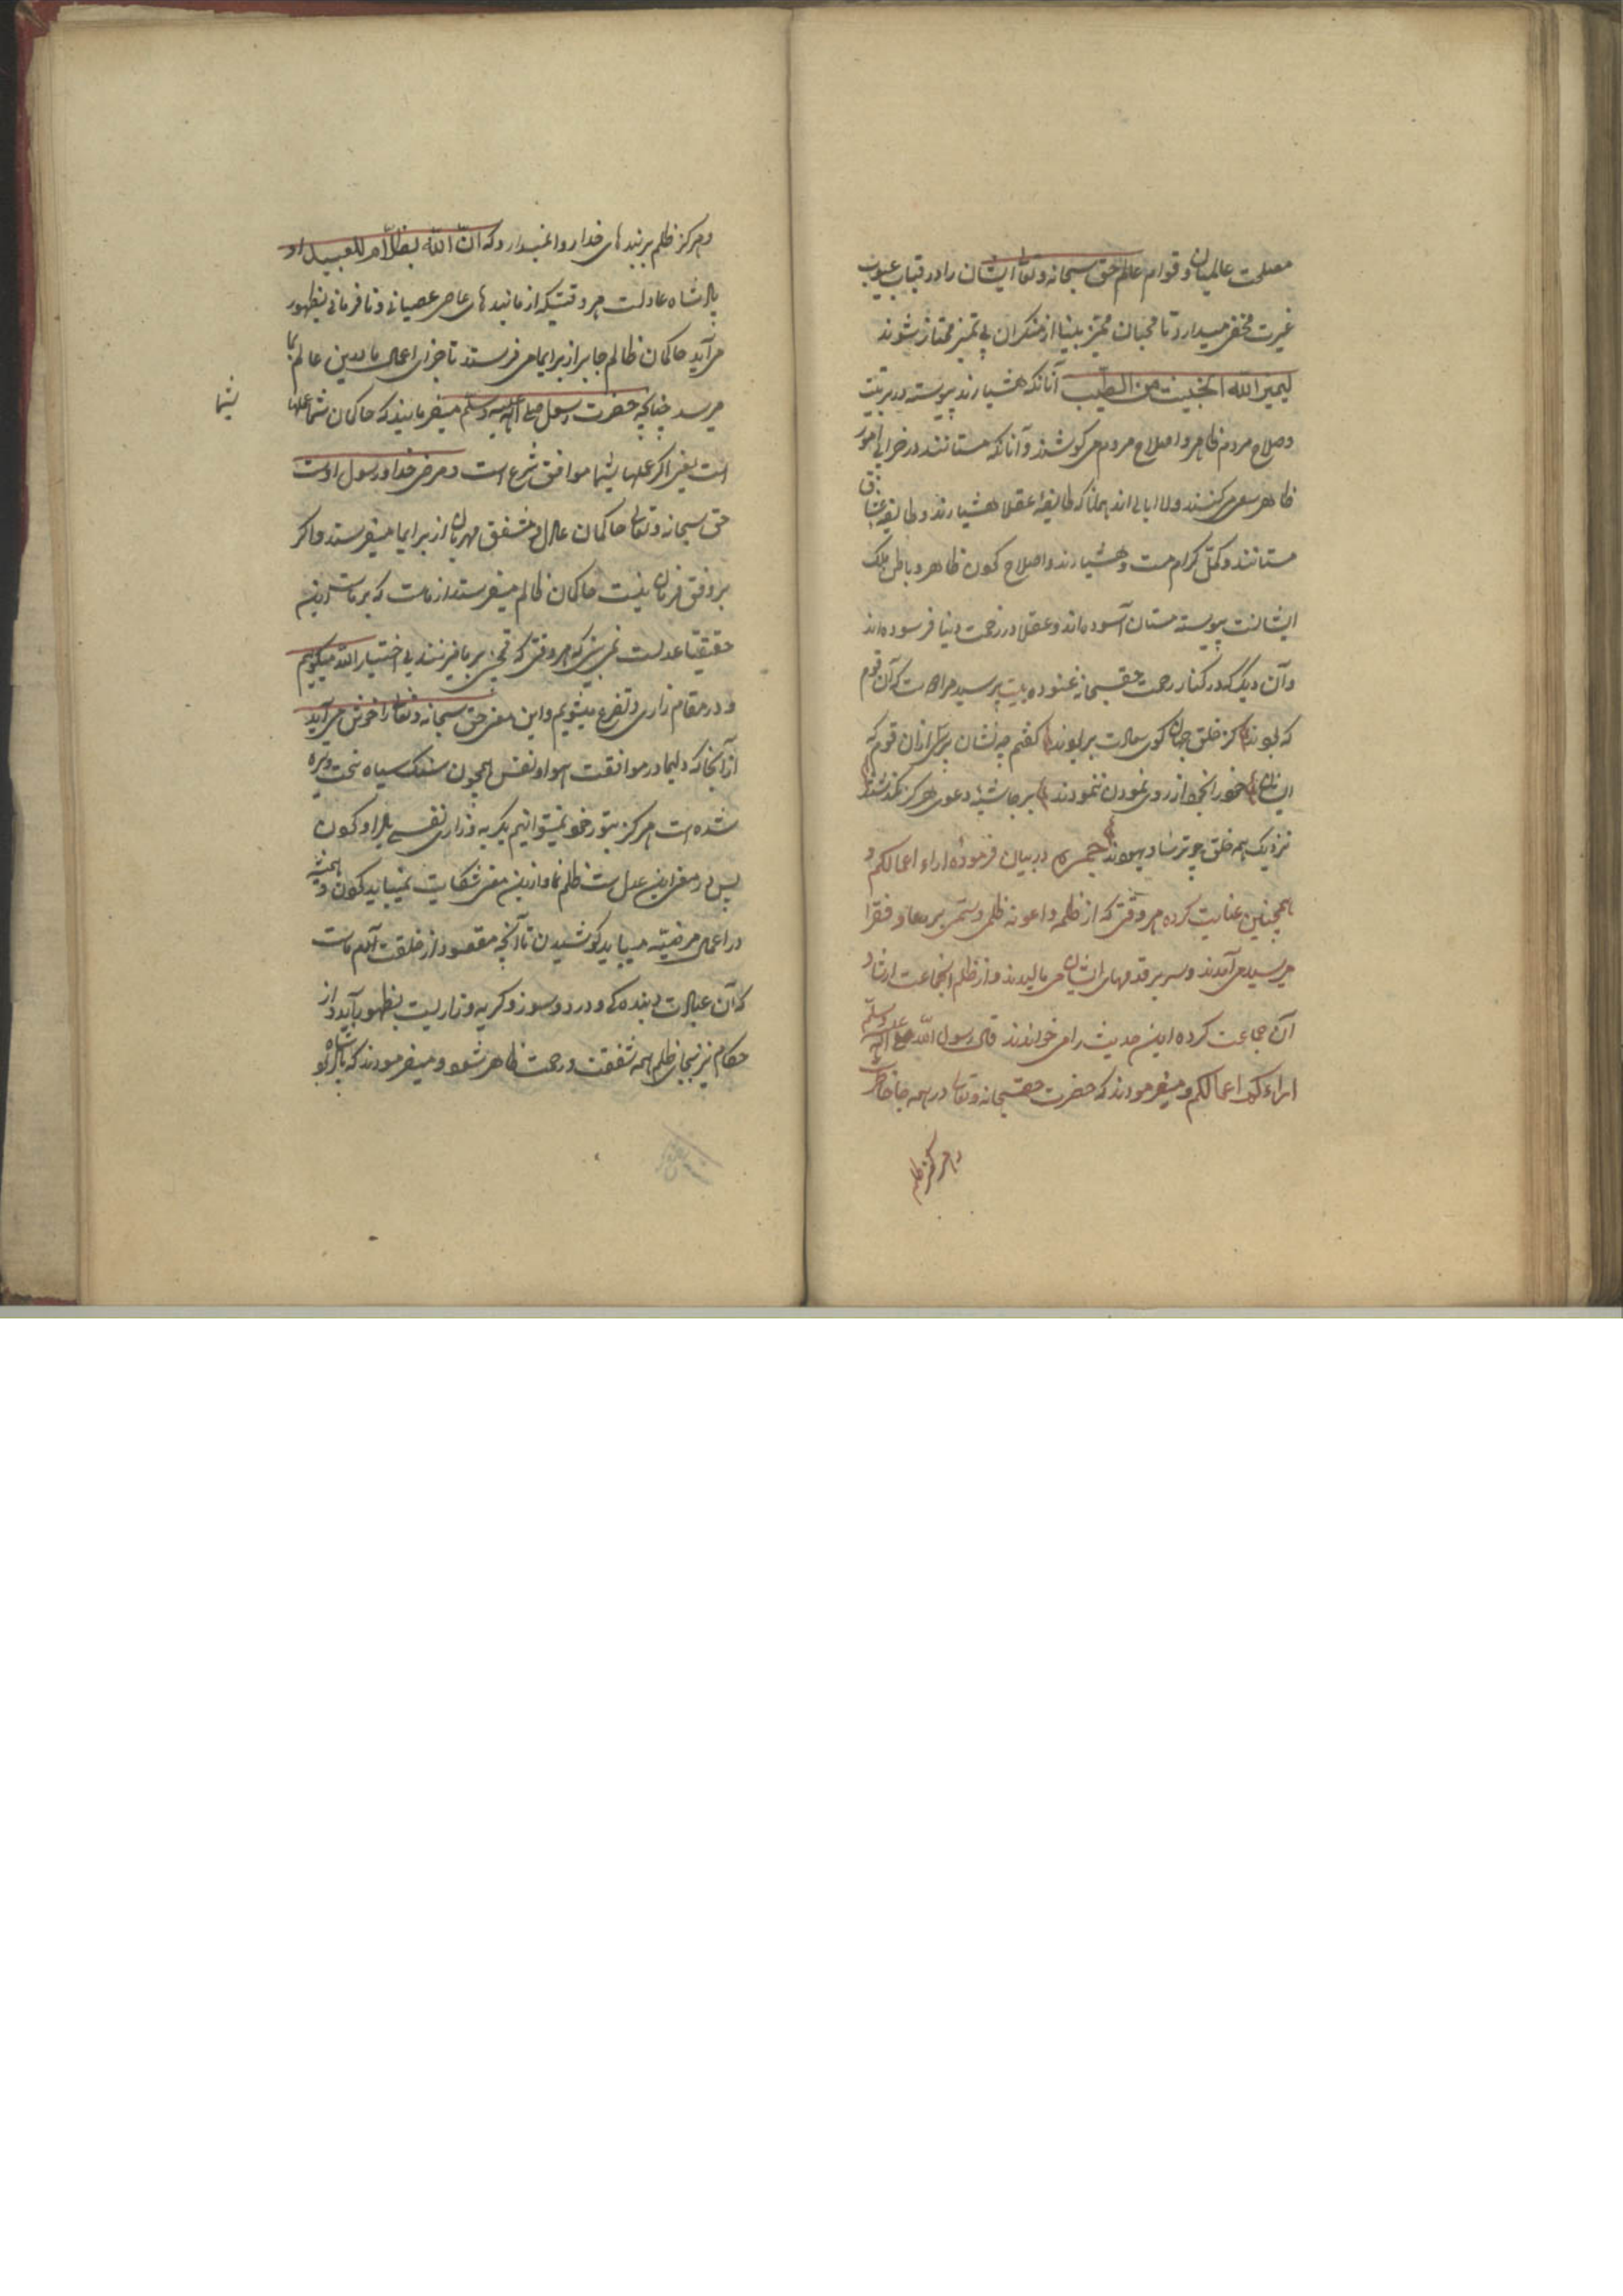 مصلحت عالمیان و قوام عالم حق سبحانه و تعالی ایشان را در قباب عیوب
غیرت مخفی میدارد تا محبان ممیز بینا از منکران بی تمیز ممتاز شوند
لیمیز الله الخبیث من الطیب آنانکه هشیارند پیوسته در تربیت
و صلاح مردم ظاهر و اصلاح مردم می کوشند و آنانکه مستانند در خرابی امور
ظاهر سعی می کنند و لا ابالی اند همانا که طایفهٔ عقلا هشیارند و طایفهٔ عشاق
مستانند و کمّل کرام مست و هشیارند و اصلاح کون ظاهر و باطن ملک
ایشانست پیوسته مستان آسوده اند و عقلا در زحمت دنیا فرسوده اند
و آن دیگر که در کنار رحمت حق سبحانه غنوده بیت پرسید مرا که آن قوم
که بودند کز خلق جهان گوی سعادت بربودند گفتم چه نشان پرسی از آن قوم که
ایشان خود را بخدا از روی نمودن ننمودند بر حاشیهٔ دعوی هرگز نگذشتند
نزدیک همه خلق چو ترسا و یهودند همچنین در بیان فرمودهٔ امراء اعمالکم و
همچنین عنایت کرده هر وقتی که از ظلمه و اعونه ظلمی و ستمی بر ضعفا و فقرا
میرسید می آمدند و سر بر قدمهای ایشان می مالیدند و از ظلم آنجماعت
آن جماعت کرده این حدیث را می خواندند قال رسول الله صلی الله علیه وسلم
امراءکم اعمالکم و میفرمودند که حضرت حق سبحانه و تعالی در همه جا حاضر است
و هرگز ظلم
و هرگز ظلم بر بندهای خدا روا نمیدارد که ان الله لیس بظلام للعبید او
پادشاه عادلست هر وقتیکه از ما بندهای عاصی عصیانی و نافرمانی بظهور
می آید حاکمان ظالم جابر از برای ما می فرستد تا جزای اعمال ما درین عالم بما
میرسد چنانچه حضرت رسول صلی الله علیه وسلم میفرمایند که حاکمان شما عملهاء
شما
است یعنی اگر عملهاء شما موافق شرع است و مرضی خدا و رسول اوست
حق سبحانه و تعالی حاکمان عادل و مشفق مهربان از برای ما میفرستد و اگر
بر وفق فرمان نیست حاکمان ظالم میفرستد از ماست که بر ماست این
حقیقتا عدلست نمی بینی که هر وقتی که قمچی بر ما میزنند بی اختیار الله میگوییم
و در مقام زاری و تضرع میشویم و این معنی حق سبحانه و تعالی را خوش می آید
از آنجا که دلهای ما در موافقت هوا و نفس همچون سنگ سیاه سخت و تیره
شده است هرگز بتصور خود نمیتوانیم یک گریه و زاری نفسی باراد کردن
پس در معنی این عدل است ظلم نما و ازین معنی شکایت نمیباید کردن و همیشه
در اعمال مرضیه میباید کوشیدن تا آنچه مقصود از خلقت آدم ماست
که آن عبادت و بندگی و درد و سوز و گریه و زاریست بظهور آید و از
حکام نیز بجای ظلم همه شفقت و رحمت ظاهر شود و میفرمودند که پادشاه بو